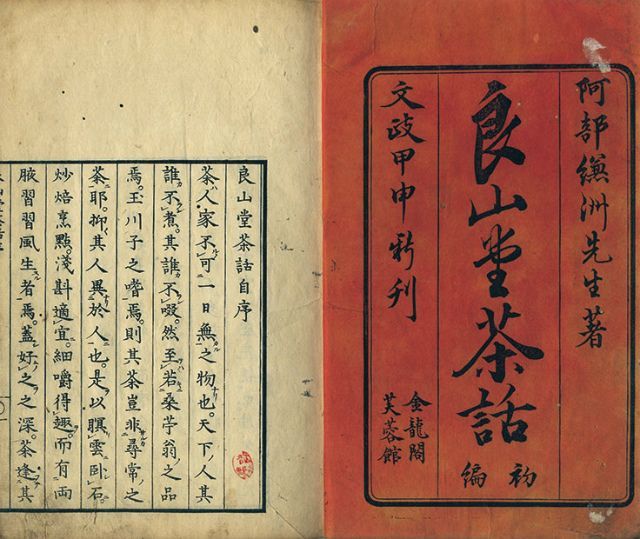 阿部縑洲先生著
良山堂茶話
初編
文政甲申新刊
金龍閣
芙蓉館
良山堂茶話自序
茶。人家不可一日無之物也。天下人其
誰不煮。其誰不啜。然至若桑苧翁之品
焉。玉川子之嗜焉。則其茶豈非尋常之
茶耶。抑其人異於人也。是以雲臥石。
炒焙烹點。淺斟適宜。細嚼得趣。而有両
腋習習風生者焉。蓋好之之深。茶逢其